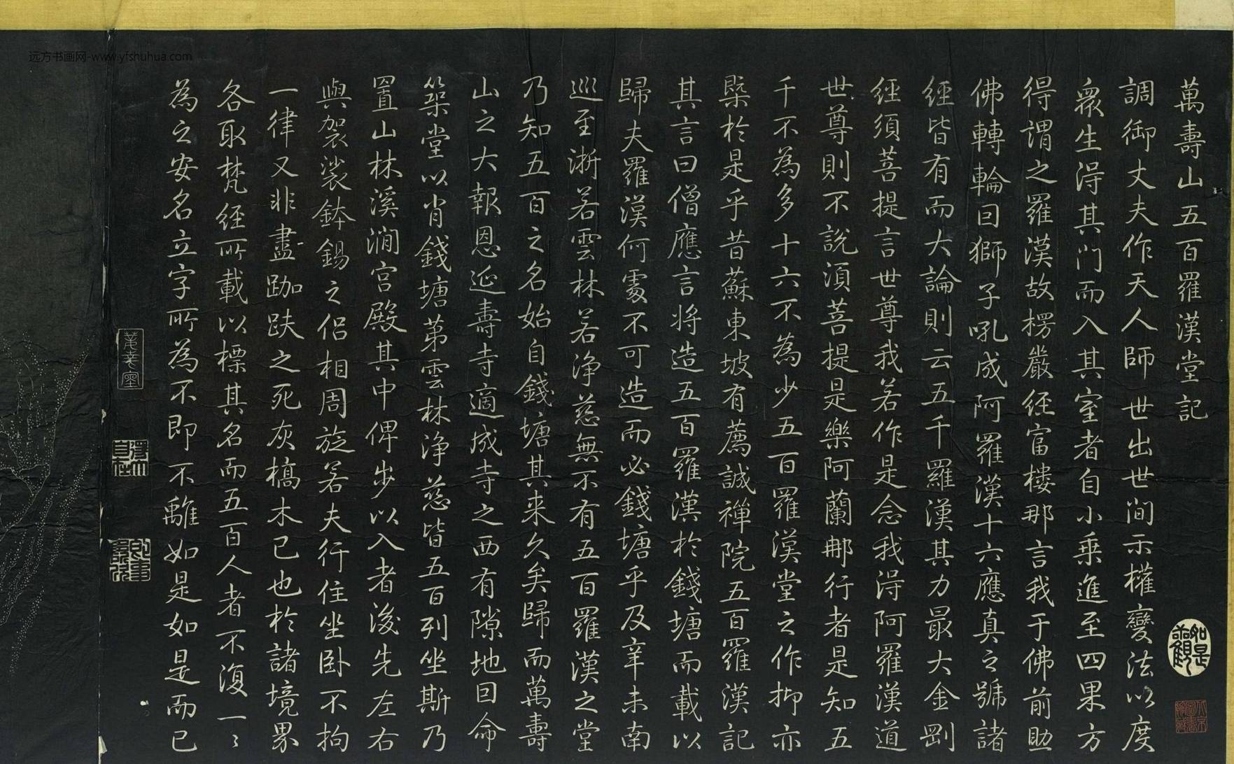 萬壽山五百羅漢堂記
調御丈夫作天人師世出世間示權變法以度
衆生得其門而入其室者自小乗進至四果方
得謂之羅漢故楞嚴経富樓那言我于佛前助
佛轉輪曰獅子吼成阿羅漢十六應真之號諸
經皆有而大論則云五千羅漢其力最大金剛
経須菩提言世尊我若作是念我得阿羅漢道
世尊則不說須菩提是樂阿蘭那行者是知五
千不為多十六不為少五百羅漢堂之作抑亦
槩於是乎昔蘇東坡有薦誠禪院五百羅漢記
其言曰僧應言将造五百羅漢於錢塘而載以
歸夫羅漢何處不可造而必錢塘乎及辛未南
巡至浙若雲林若浄慈無不有五百羅漢之堂
乃知五百之名始自錢塘其来久矣歸而萬壽
山之大報恩延壽寺適成寺之西有隙地曰命
築堂以肖錢塘第雲林浄慈皆五百列坐斯乃
置山林溪澗宫殿其中俾步以入者後先左右
與袈裟鉢錫之侶相周旋若夫行住坐卧不拘
一律又非盡跏趺之死灰槁木已也於諸境界
各取梵經所載以標其名而五百人者不復一〻
為之安名立字所為不即不離如是如是而已
如是觀
远方书画网-www.yfshuhua.com